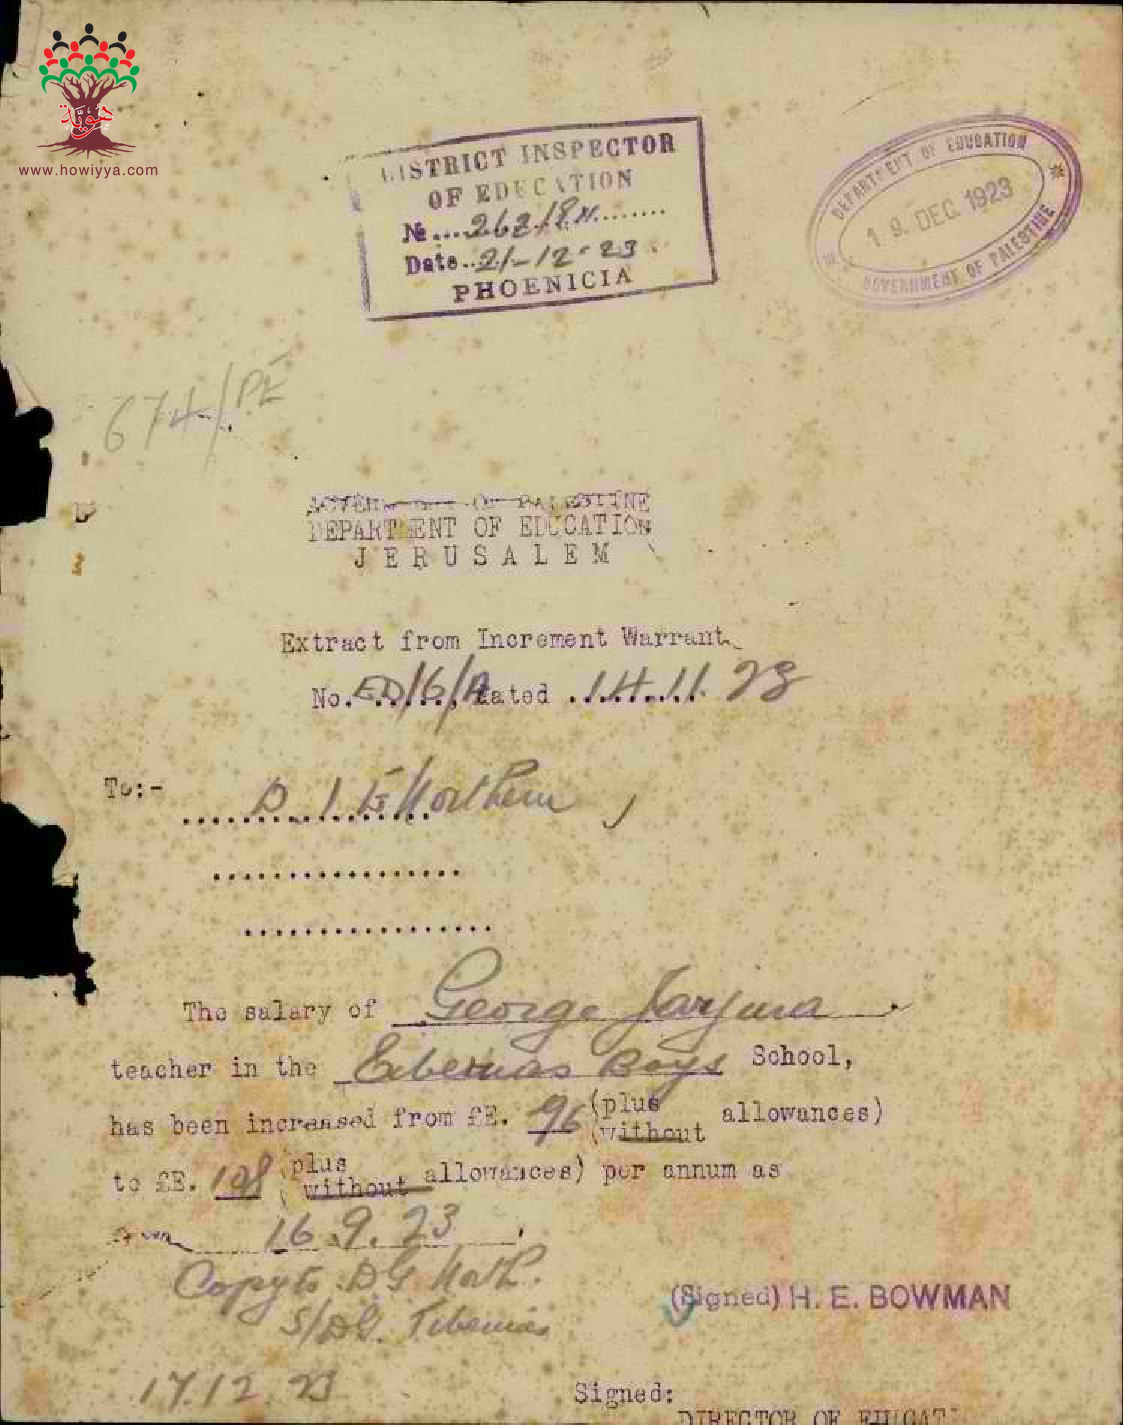 هوية
www.howiyya.com
DISTRICT INSPECTOR
OF EDUCATION
№....262/8N.........
Date..21-12-23
PHOENICIA
DEPARTMENT OF EDUCATION
19. DEC. 1923
GOVERNMENT OF PALESTINE
674/PE
GOVERNMENT OF PALESTINE
DEPARTMENT OF EDUCATION
JERUSALEM
Extract from Increment Warrant
No. ED/6/A dated 14.11.23
To:-
D.I.E Northern,
The salary of George
teacher in the Boys School,
has been increased from £E. 96 (plus allowances)
(without
to £E. 108 (plus allowances) per annum as
(without
from 16.9.23
Copy to DG North.
S/DG. Tiberias
(Signed) H. E. BOWMAN
17.12.23
Signed:
DIRECTOR OF EDUCATI